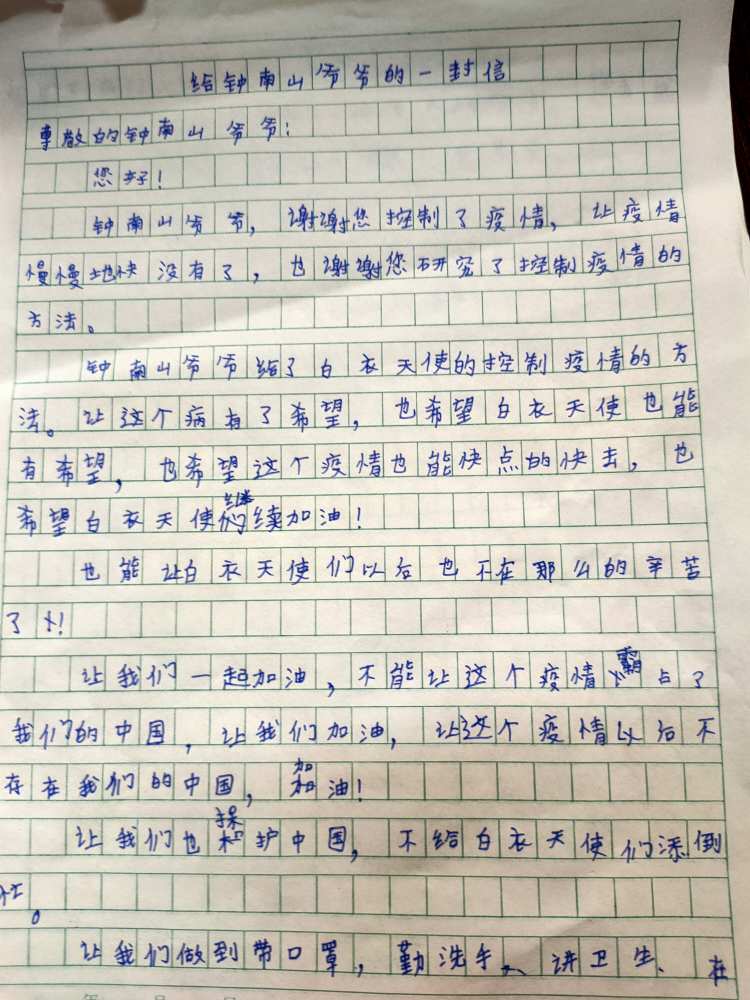 给钟南山爷爷的一封信
尊敬的钟南山爷爷：
您好！
钟南山爷爷，谢谢您控制了疫情，让疫情
慢慢地快没有了，也谢谢您研究了控制疫情的
方法。
钟南山爷爷给了白衣天使的控制疫情的方
法。让这个病有了希望，也希望白衣天使也能
有希望，也希望这个疫情也能快点的快去，也
希望白衣天使们继续加油！
也能让白衣天使们以后也不在那么的辛苦
了！
让我们一起加油，不能让这个疫情霸占了
我们的中国，让我们加油，让这个疫情以后不
存在我们的中国，加油！
让我们也保护中国，不给白衣天使们添倒
忙。
让我们做到带口罩，勤洗手、讲卫生、在